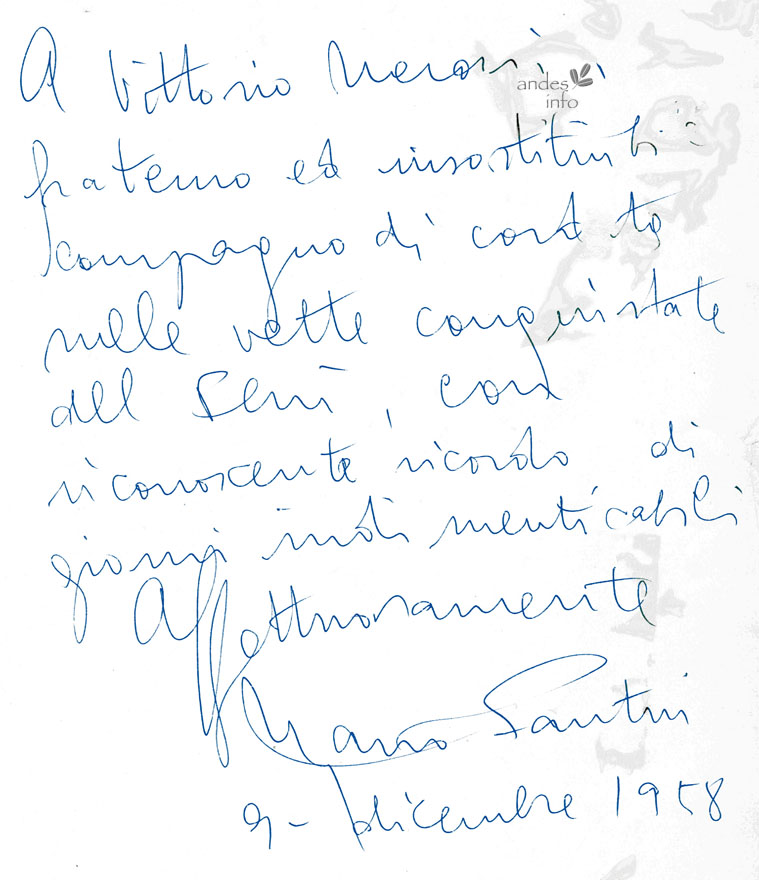 A Vittorio Meroni,
andes
info
fraterno ed insostituibile
compagno di cordata
nelle vette conquistate
del Perù, con
riconoscente ricordo di
giorni indimenticabili
Affettuosamente
Mario Fantin
9 - dicembre 1958